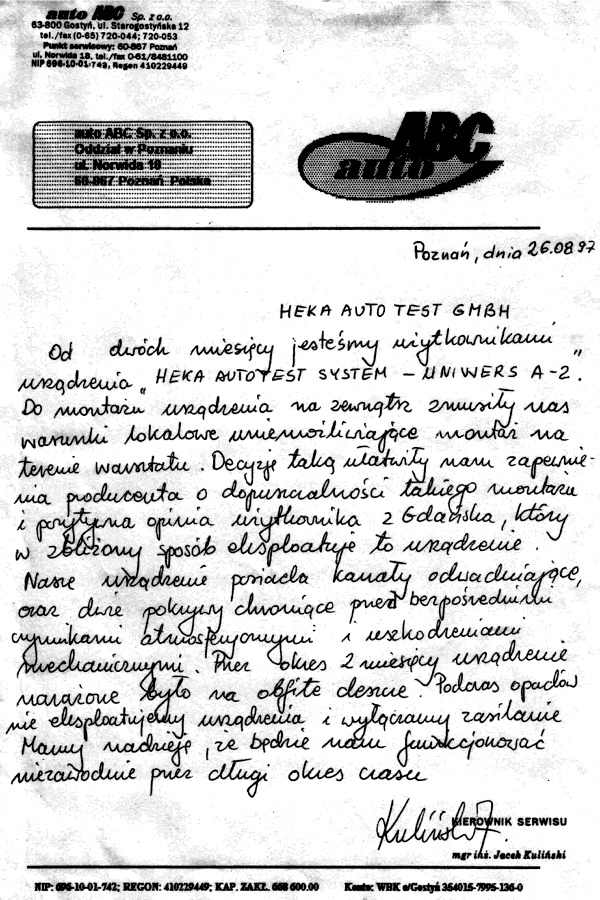 auto ABC Sp. z o.o.
63-800 Gostyń, ul. Starogostyńska 12
tel./fax (0-65) 720-044; 720-053
Punkt serwisowy: 60-867 Poznań
ul. Norwida 18, tel./fax 0-61/8481100
NIP 696-10-01-742, Regon 410229449
auto ABC Sp. z o.o.
Oddział w Poznaniu
ul. Norwida 18
60-867 Poznań Polska
ABC
auto
Poznań, dnia 26.08.97
HEKA AUTO TEST GMBH
Od dwóch miesięcy jesteśmy użytkownikami
urządzenia „HEKA AUTOTEST SYSTEM – UNIWERS A-2”.
Do montażu urządzenia na zewnątrz zmusiły nas
warunki lokalowe uniemożliwiające montaż na
terenie warsztatu. Decyzję taką ułatwiły nam zapewnie-
nia producenta o dopuszczalności takiego montażu
i pozytywna opinia użytkownika z Gdańska, który
w zbliżony sposób eksploatuje to urządzenie.
Nasze urządzenie posiada kanały odwadniające,
oraz dwie pokrywy chroniące przed bezpośrednimi
czynnikami atmosferycznymi i uszkodzeniami
mechanicznymi. Przez okres 2 miesięcy urządzenie
narażone było na obfite deszcze. Podczas opadów
nie eksploatujemy urządzenia i wyłączamy zasilanie
Mamy nadzieję, że będzie nam funkcjonować
niezawodnie przez długi okres czasu
KIEROWNIK SERWISU
Kuliński J.
mgr inż. Jacek Kuliński
NIP: 696-10-01-742; REGON: 410229449; KAP. ZAKŁ. 668 600.00 Konto: WBK o/Gostyń 354015-7995-136-0